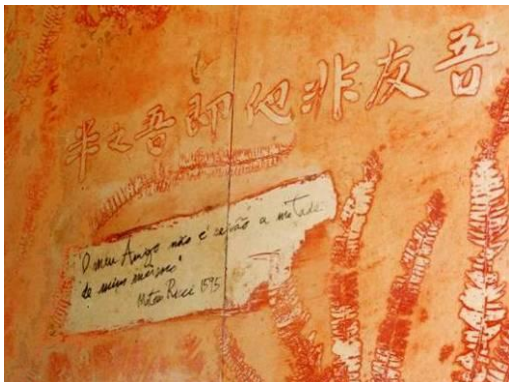 吾友非他即吾之半
"O meu Amigo não é senão a metade
de mim mesmo"
Mateo Ricci 1595